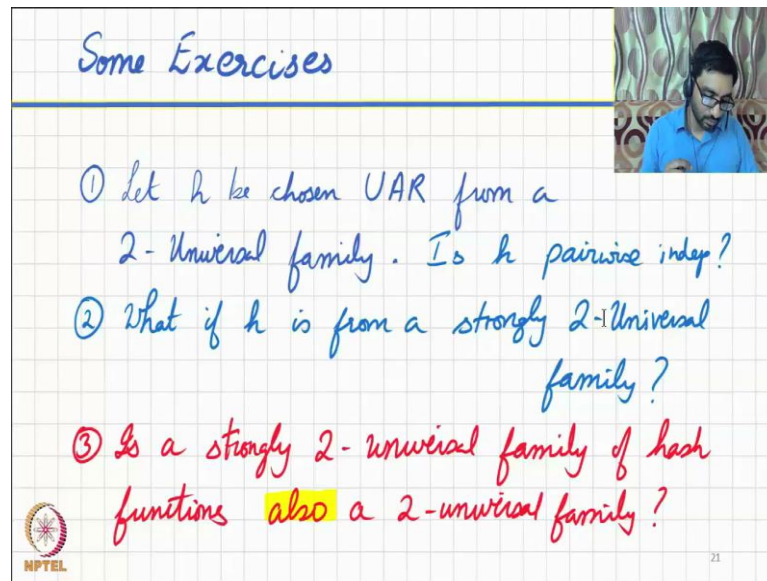 Some Exercises
① Let h be chosen UAR from a
2-Universal family. Is h pairwise indep?
② What if h is from a strongly 2-Universal
family?
③ Is a strongly 2-universal family of hash
functions also a 2-universal family?
NPTEL
21